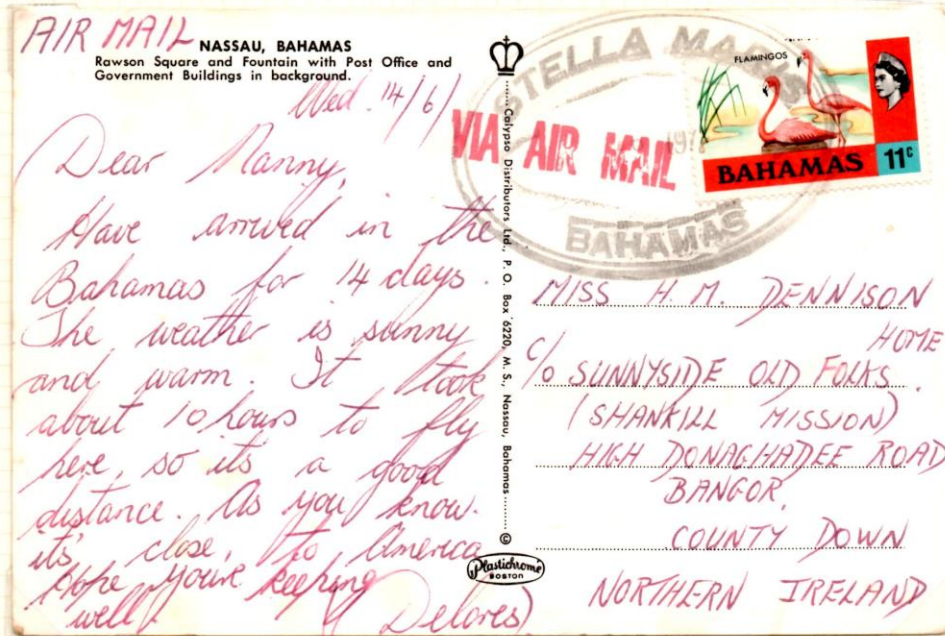 AIR MAIL
NASSAU, BAHAMAS
Rawson Square and Fountain with Post Office and
Government Buildings in background.
Wed. 14/6/
Dear Nanny,
Have arrived in the
Bahamas for 14 days.
The weather is sunny
and warm. It took
about 10 hours to fly
here, so its a good
distance. As you know
it's close, to America
Hope you're keeping
well
Delores)
Calypso Distributors Ltd., P.O. Box 6220, M. S., Nassau, Bahamas
©
Plastichrome
BOSTON
STELLA MARIS
BAHAMAS
VIA AIR MAIL
FLAMINGOS
BAHAMAS 11c
MISS H. M. DENNISON
c/o SUNNYSIDE OLD FOLKS HOME
(SHANKILL MISSION)
HIGH DONAGHADEE ROAD
BANGOR,
COUNTY DOWN
NORTHERN IRELAND